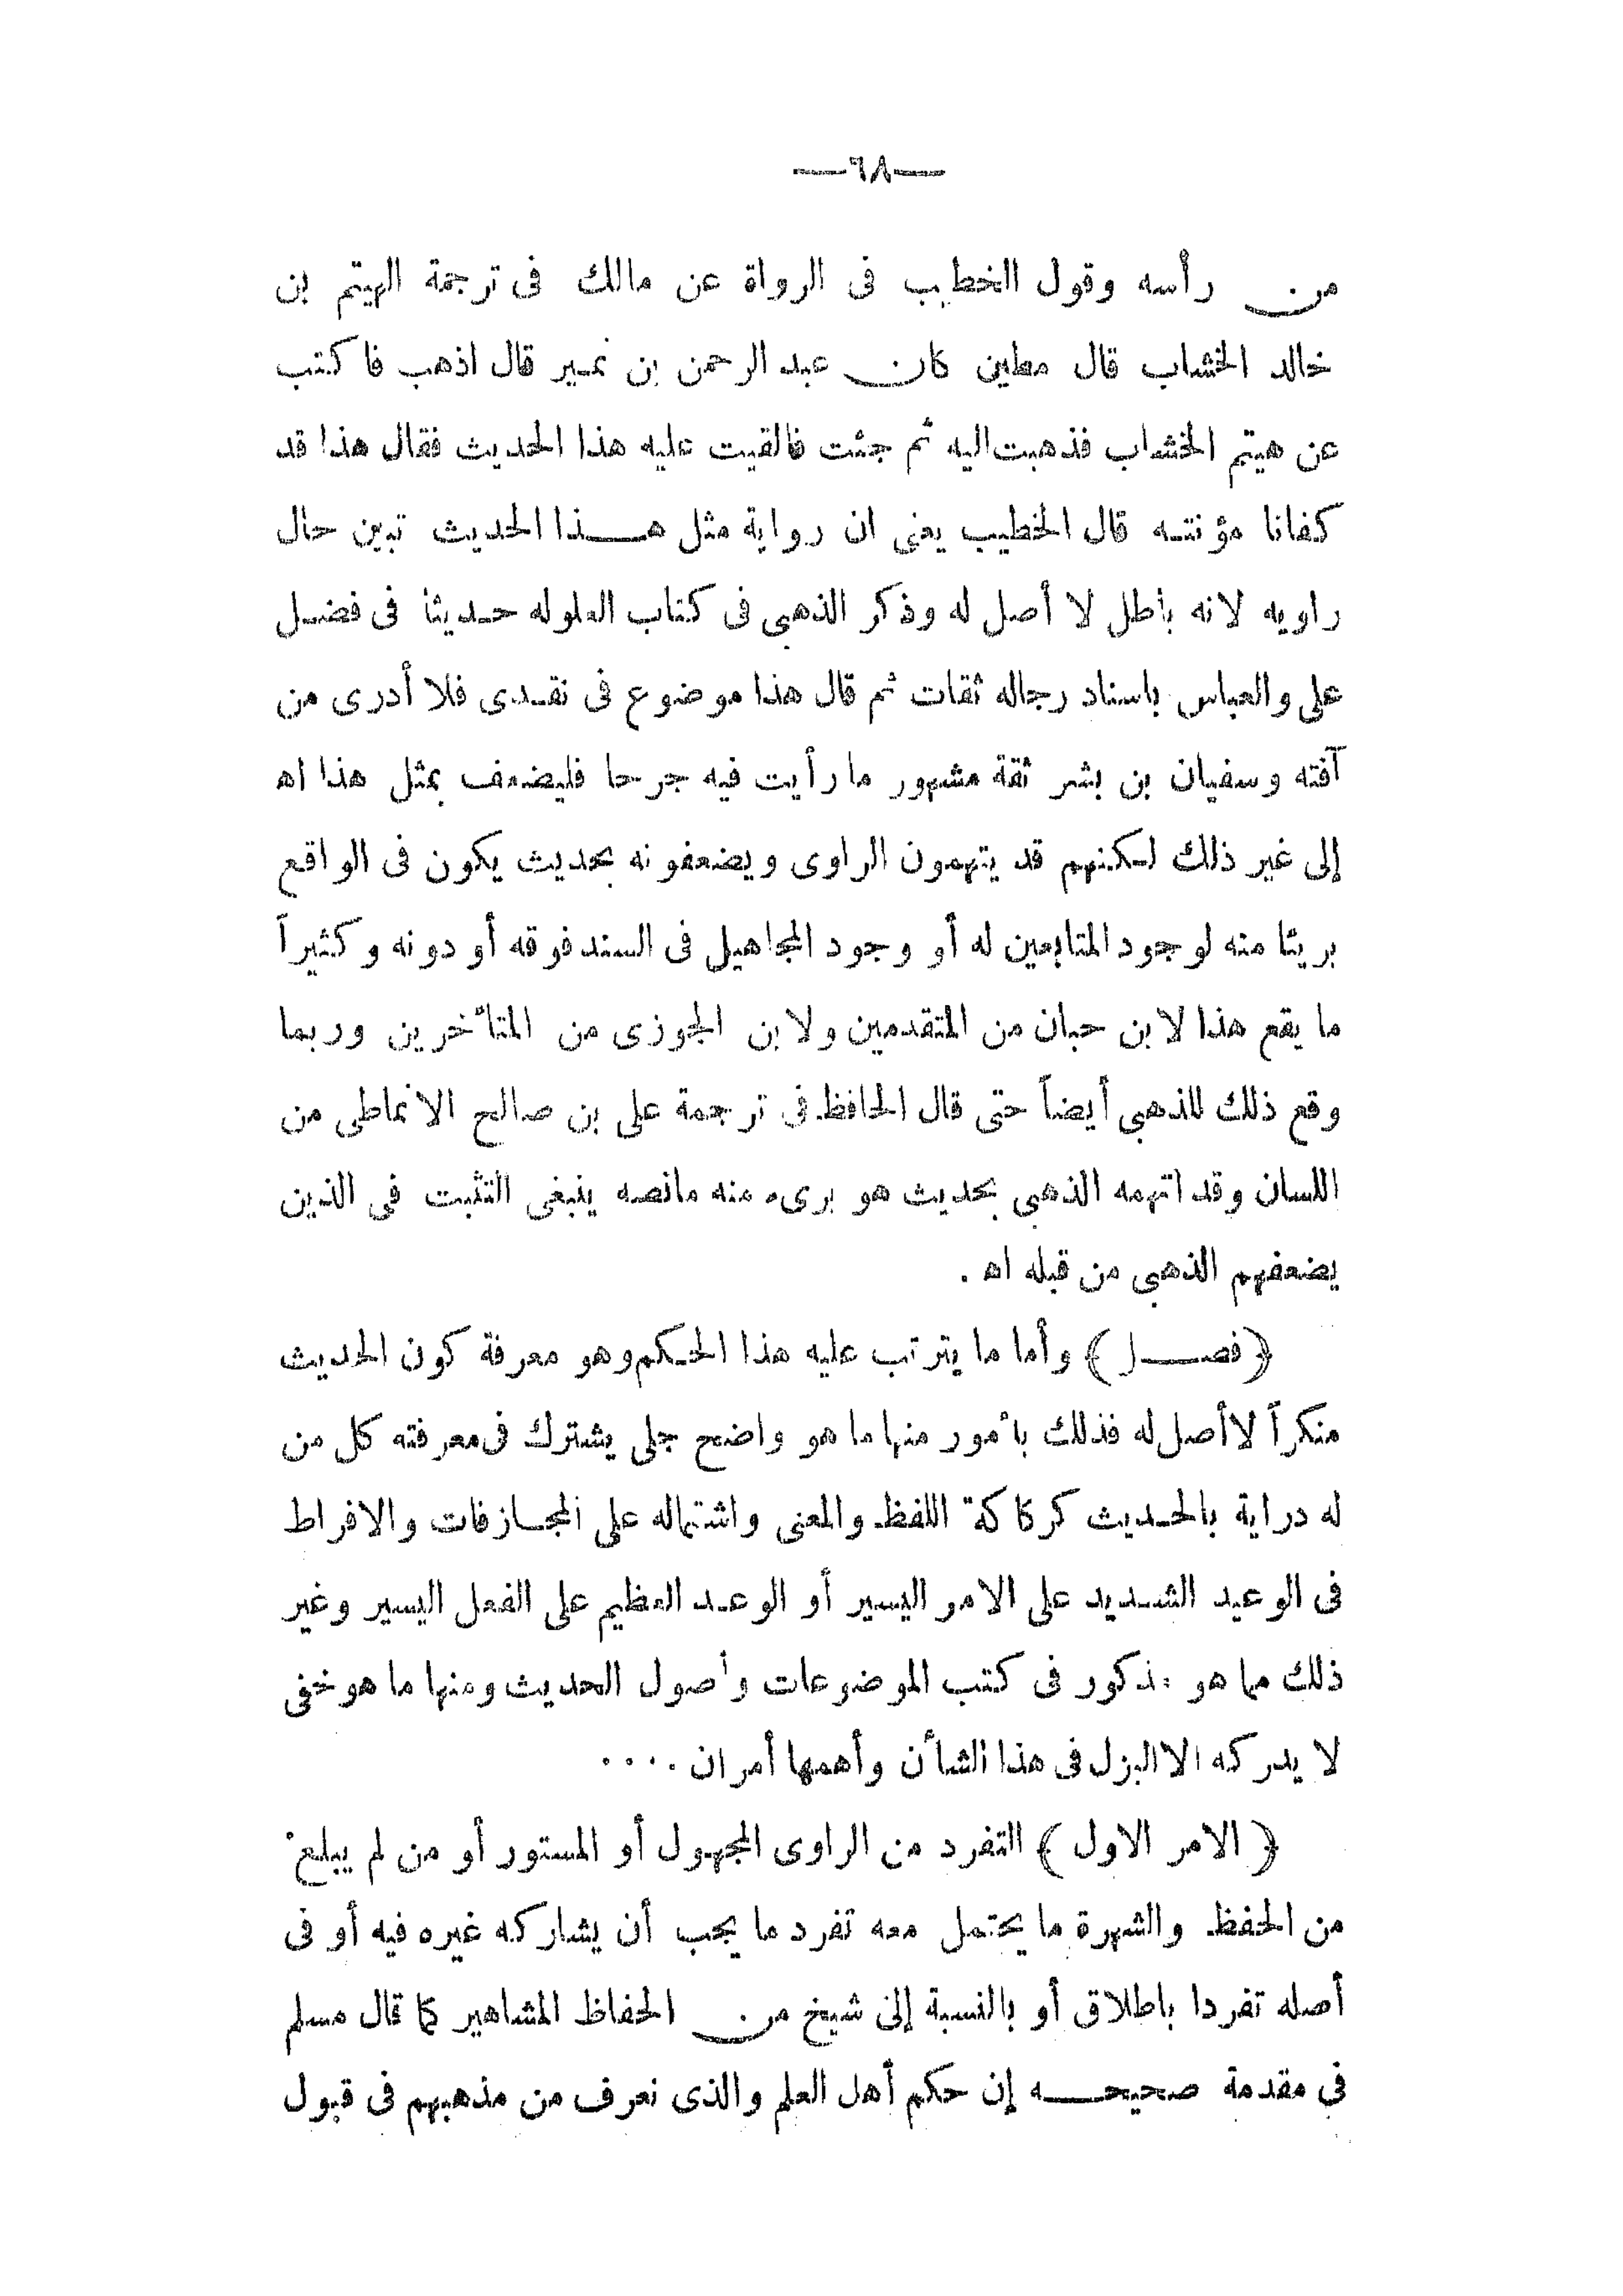 —٦٨—
من رأسه وقول الخطيب فى الرواة عن مالك فى ترجمة الهيتم بن
خالد الخشاب قال مطين كان عبد الرحمن بن نمير قال اذهب فاكتب
عن هيتم الخشاب فذهبت اليه ثم جئت فالقيت عليه هذا الحديث فقال هذا قد
كفانا مؤنته قال الخطيب يعنى ان رواية مثل هذا الحديث تبين حال
راويه لانه باطل لا أصل له وذكر الذهبى فى كتاب العلو له حديثا فى فضل
على والعباس باسناد رجاله ثقات ثم قال هذا موضوع فى نقدى فلا أدرى من
آفته وسفيان بن بشر ثقة مشهور ما رأيت فيه جرحا فليضعف بمثل هذا اه
إلى غير ذلك لكنهم قد يتهمون الراوى ويضعفونه بحديث يكون فى الواقع
بريئا منه لوجود المتابعين له أو وجود المجاهيل فى السند فوقه أو دونه وكثيراً
ما يقع هذا لابن حبان من المتقدمين ولابن الجوزى من المتأخرين وربما
وقع ذلك للذهبى أيضاً حتى قال الحافظ فى ترجمة على بن صالح الانماطى من
اللسان وقد اتهمه الذهبى بحديث هو برىء منه مانصه ينبغى التثبت فى الذين
يضعفهم الذهبى من قبله اه .
﴿ فصل ﴾ وأما ما يترتب عليه هذا الحكم وهو معرفة كون الحديث
منكراً لا أصل له فذلك بأمور منها ما هو واضح جلى يشترك فى معرفته كل من
له دراية بالحديث كركاكة اللفظ والمعنى واشتماله على المجازفات والافراط
فى الوعيد الشديد على الامر اليسير أو الوعد العظيم على الفعل اليسير وغير
ذلك مما هو مذكور فى كتب الموضوعات وأصول الحديث ومنها ما هو خفى
لا يدركه الا البزل فى هذا الشأن وأهمها أمران ....
﴿ الامر الاول ﴾ التفرد من الراوى المجهول أو المستور أو من لم يبلغ
من الحفظ والشهرة ما يحتمل معه تفرد ما يجب أن يشاركه غيره فيه أو فى
أصله تفردا باطلاق أو بالنسبة إلى شيخ من الحفاظ المشاهير كما قال مسلم
فى مقدمة صحيحه إن حكم أهل العلم والذى نعرف من مذهبهم فى قبول